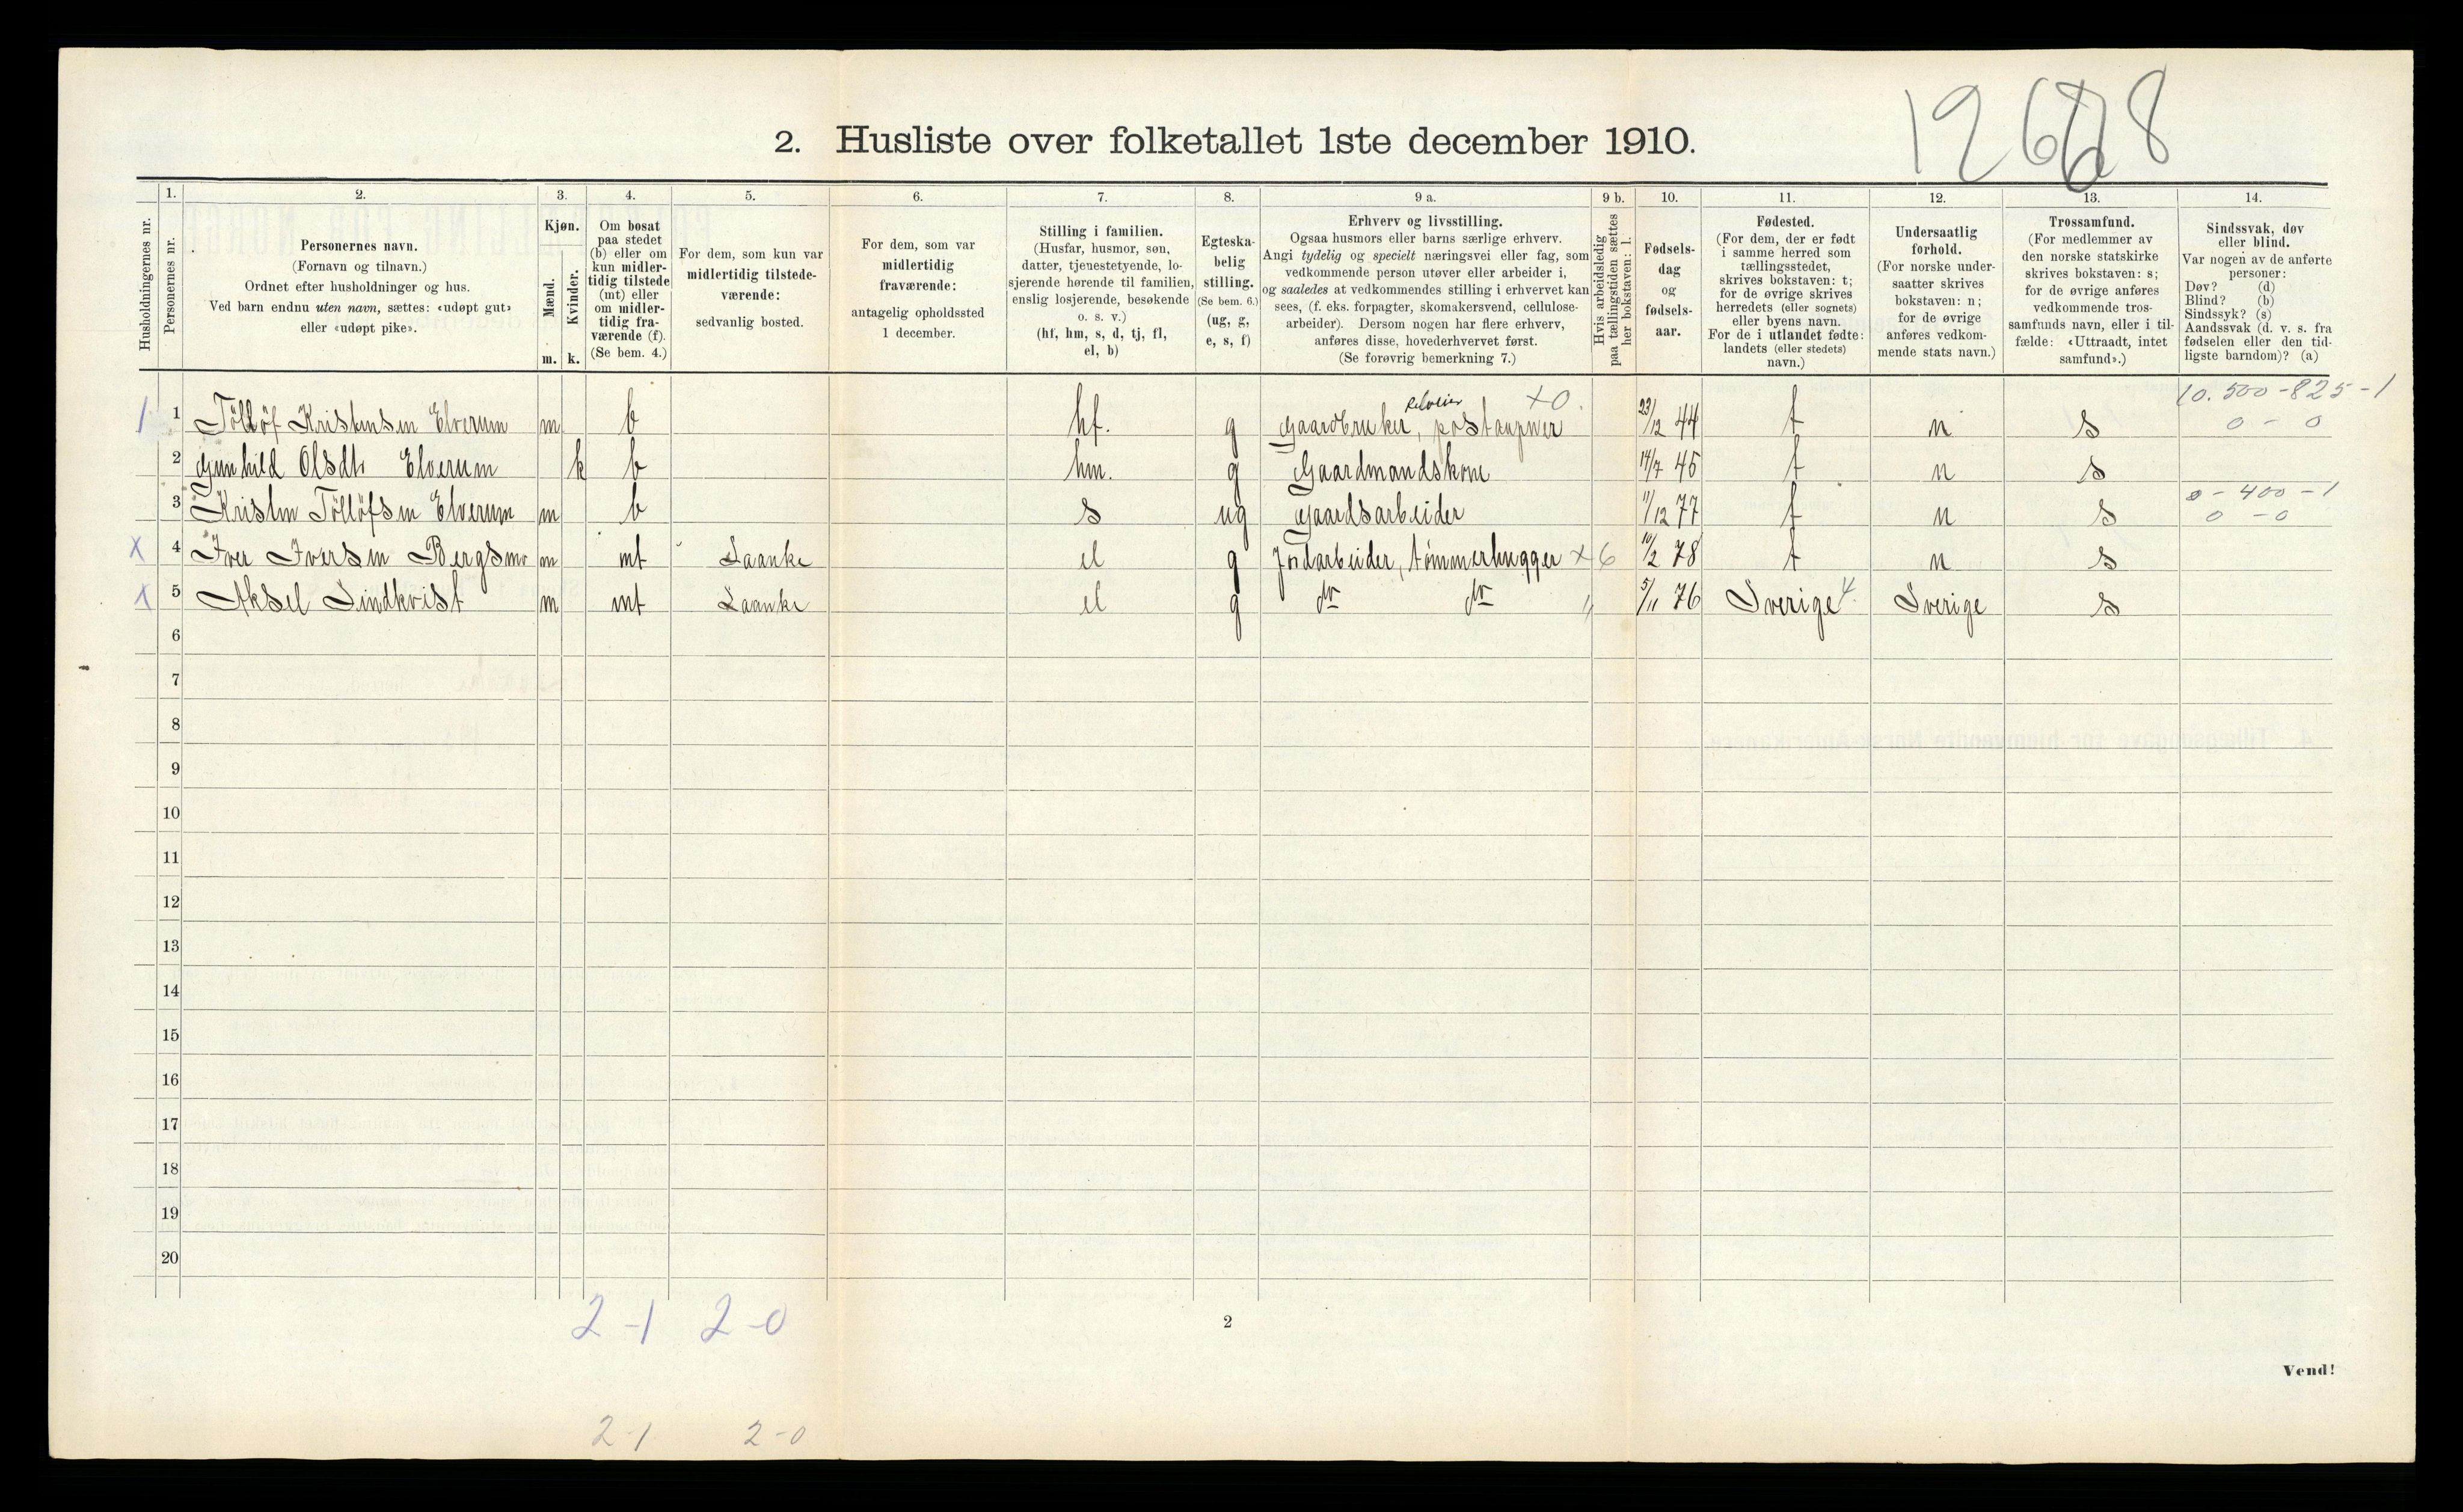 2. Husliste over folketallet 1ste december 1910.
1. 2. 3. 4. 5. 6. 7. 8. 9 a. 9 b. 10. 11. 12. 13. 14.
Husholdningernes nr.
Personernes nr.
Personernes navn.
(Fornavn og tilnavn.)
Ordnet efter husholdninger og hus.
Ved barn endnu uten navn, sættes: «udøpt gut»
eller «udøpt pike».
Kjøn.
Mænd.
Kvinder.
m. k.
Om bosat
paa stedet
(b) eller om
kun midler-
tidig tilstede
(mt) eller
om midler-
tidig fra-
værende (f).
(Se bem. 4.)
For dem, som kun var
midlertidig tilstede-
værende:
sedvanlig bosted.
For dem, som var
midlertidig
fraværende:
antagelig opholdssted
1 december.
Stilling i familien.
(Husfar, husmor, søn,
datter, tjenestetyende, lo-
sjerende hørende til familien,
enslig losjerende, besøkende
o. s. v.)
(hf, hm, s, d, tj, fl,
el, b)
Egteska-
belig
stilling.
(Se bem. 6.)
(ug, g,
e, s, f)
Erhverv og livsstilling.
Ogsaa husmors eller barns særlige erhverv.
Angi tydelig og specielt næringsvei eller fag, som
vedkommende person utøver eller arbeider i,
og saaledes at vedkommendes stilling i erhvervet kan
sees, (f. eks. forpagter, skomakersvend, cellulose-
arbeider). Dersom nogen har flere erhverv,
anføres disse, hovederhvervet først.
(Se forøvrig bemerkning 7.)
Hvis arbeidsledig
paa tællingstiden sættes
her bokstaven: l.
Fødsels-
dag
og
fødsels-
aar.
Fødested.
(For dem, der er født
i samme herred som
tællingsstedet,
skrives bokstaven: t;
for de øvrige skrives
herredets (eller sognets)
eller byens navn.
For de i utlandet fødte:
landets (eller stedets)
navn.)
Undersaatlig
forhold.
(For norske under-
saatter skrives
bokstaven: n;
for de øvrige
anføres vedkom-
mende stats navn.)
Trossamfund.
(For medlemmer av
den norske statskirke
skrives bokstaven: s;
for de øvrige anføres
vedkommende tros-
samfunds navn, eller i til-
fælde: «Uttraadt, intet
samfund».)
Sindssvak, døv
eller blind.
Var nogen av de anførte
personer:
Døv? (d)
Blind? (b)
Sindssyk? (s)
Aandssvak (d. v. s. fra
fødselen eller den tid-
ligste barndom)? (a)
10.500-825-1
1 1 Tollöf Kristensen Elverum m b hf. g Gaardbruker, postaapner +0. 23/12 44 t n s 0 - 0
2 Gunhild Olsdtr Elverum k b hm. g Gaardmandskone 14/7 45 t n s
0-400-1
3 Kristen Tollöfsen Elverum m b s ug Gaardsarbeider 11/12 77 t n s 0 - 0
x 4 Iver Iversen Bergsmo m mt Laanke el g Jordarbeider, tömmerhugger +6 10/2 78 t n s
x 5 Aksel Lindkvist m mt Laanke el g do do 5/11 76 Sverige 4. Sverige s
6
7
8
9
10
11
12
13
14
15
16
17
18
19
20
2-1 2-0
2
Vend!
2-1 2-0